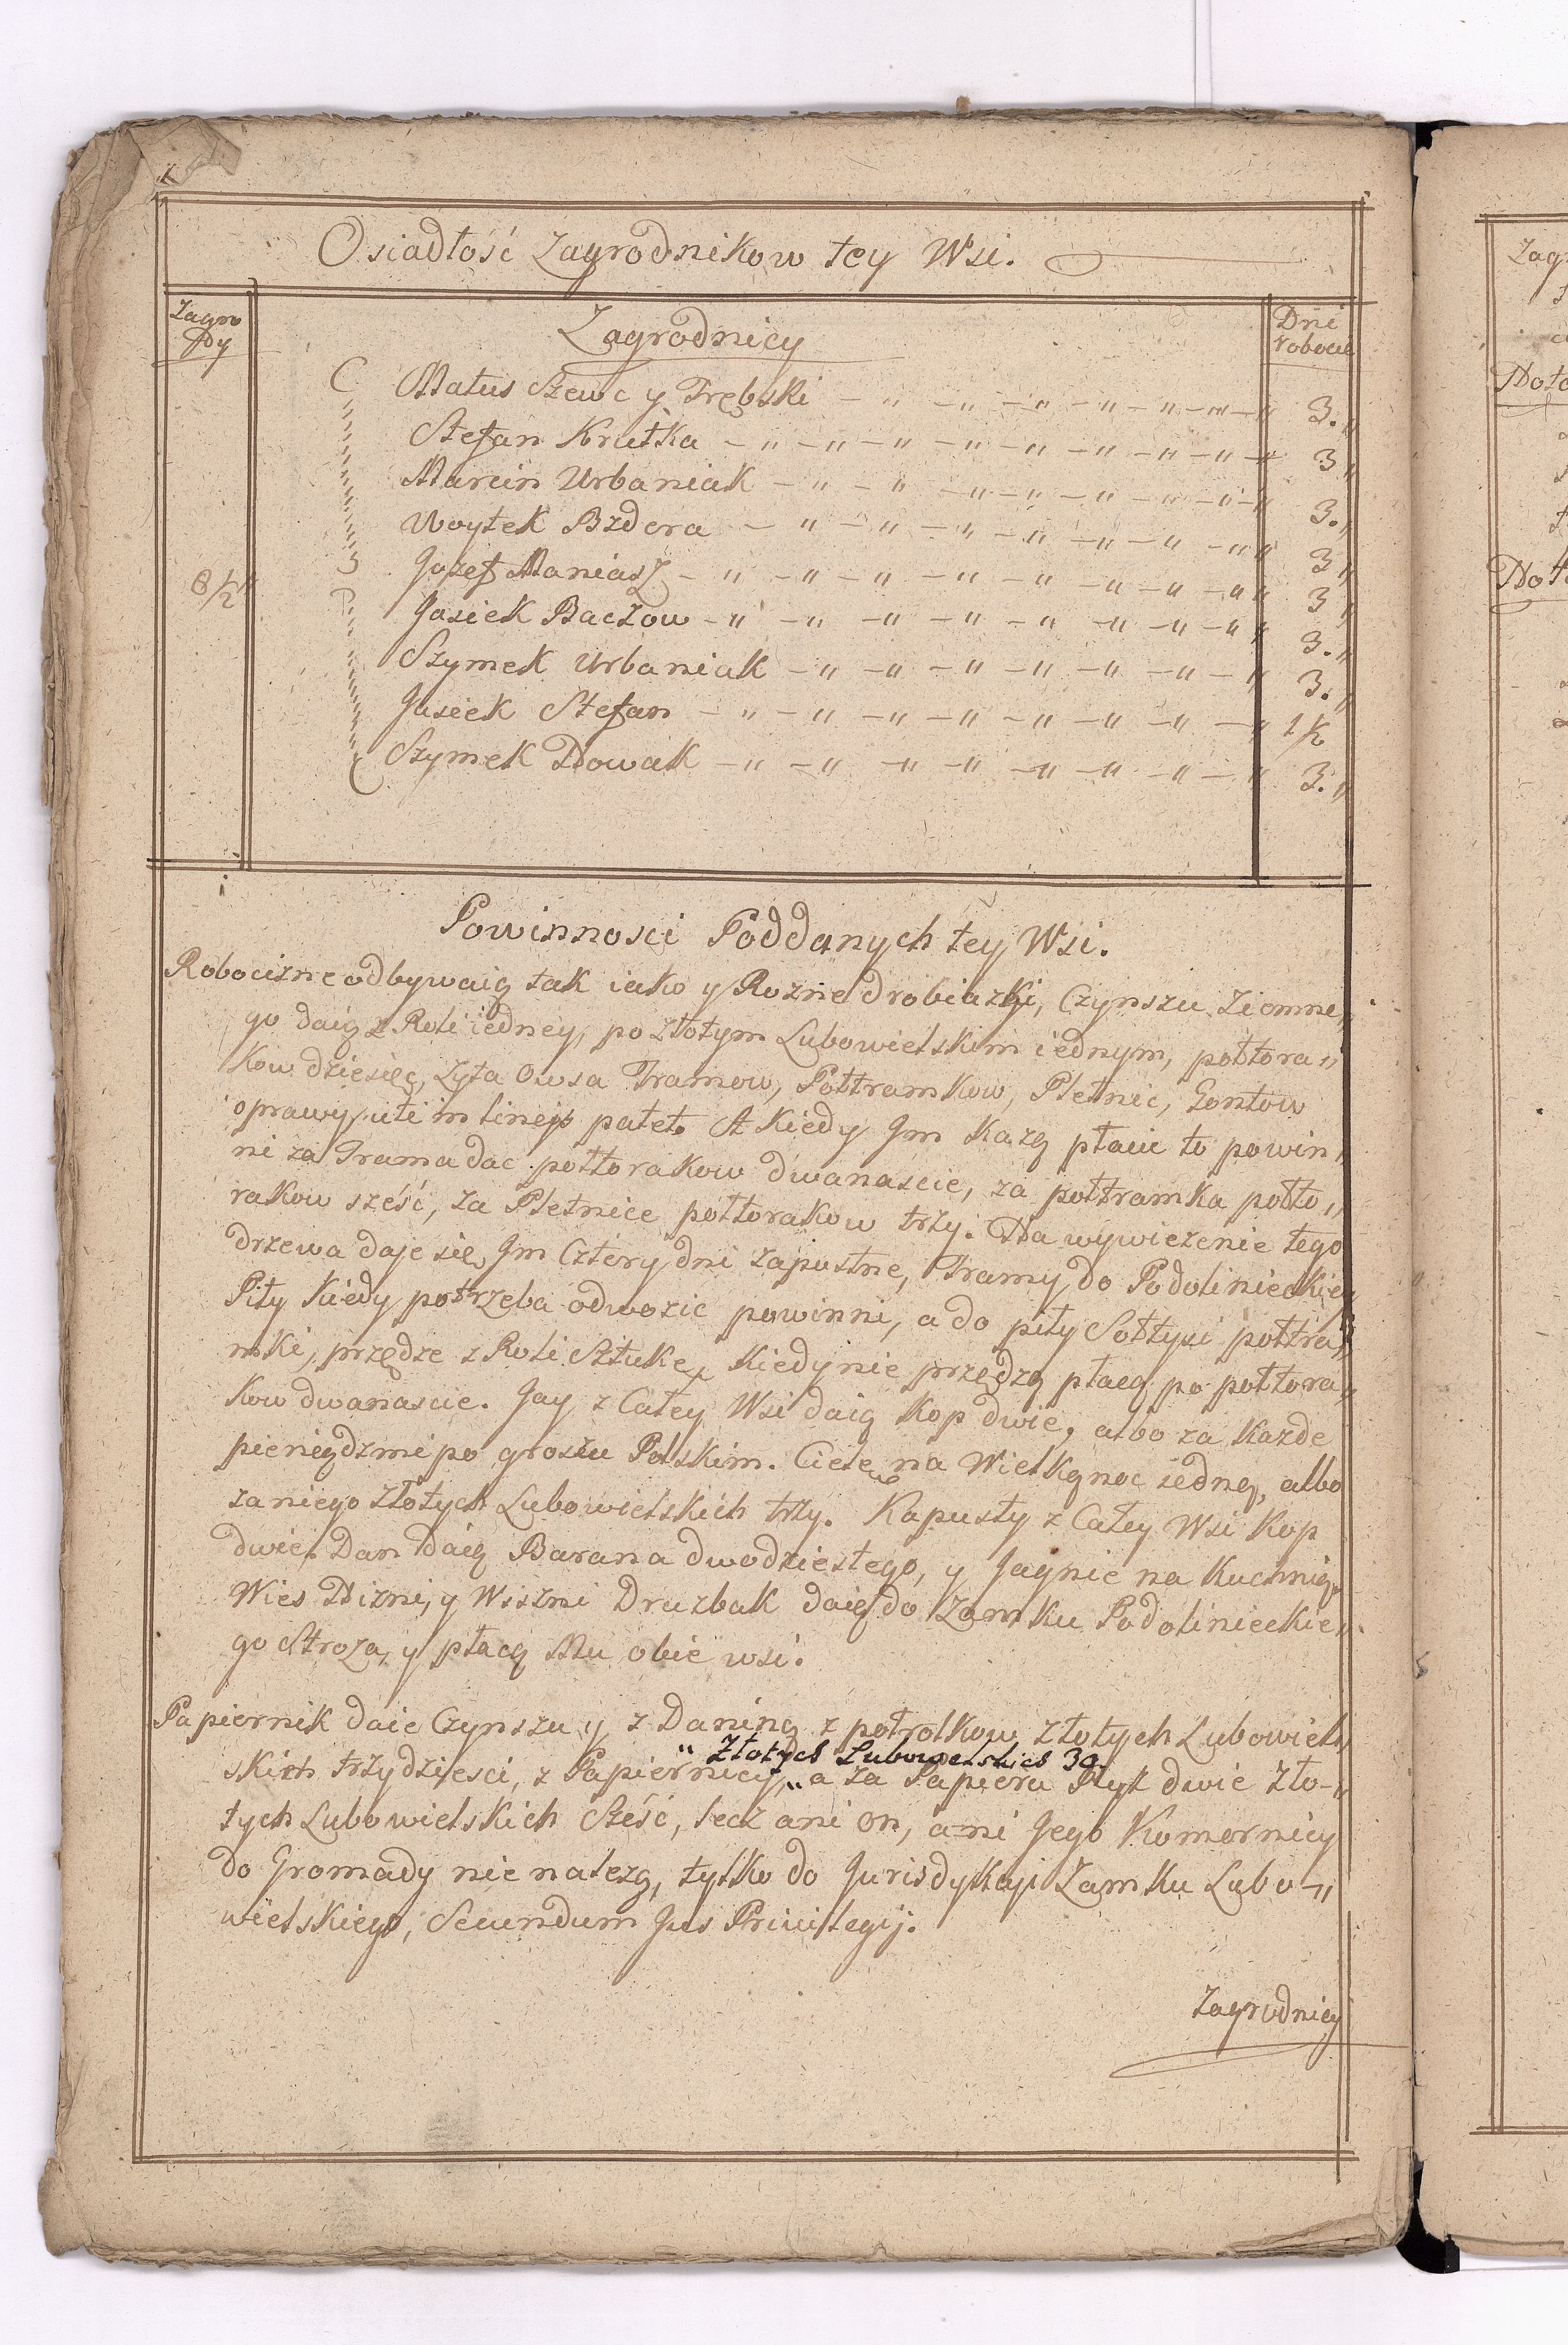 Osiadłość Zagrodnikow tey Wsi.
Zagro
dy
Zagrodnicy
Dni
robocze
Matus Szewc y Trębski - „ - „ - „ - „ - „ - „ 3.„
Stefan Krutka - „ - „ - „ - „ - „ - „ - „ 3„
Marcin Urbaniak - „ - „ - „ - „ - „ - „ - „ 3.„
Woytek Bzdera - „ - „ - „ - „ - „ - „ - „ 3„
Jozef Maniasz - „ - „ - „ - „ - „ - „ - „ 3„
8/½„
Jasiek Baczow - „ - „ - „ - „ - „ - „ - „ 3.„
Szymek Urbaniak - „ - „ - „ - „ - „ - „ - „ 3.„
Jasiek Stefan - „ - „ - „ - „ - „ - „ - „ 1/½
Szymek Nowak - „ - „ - „ - „ - „ - „ - „ 3.„
Powinnosci Poddanych tey Wsi.
Robocizne odbywaią tak iako y Rozne drobiazgi, Czynszu Ziemne„
go daią z Roli iedney, po złotym Lubowielskim iednym, połtora„
kow dziesięć, Zyta Owsa Tramow, Połtramkow, Pletnic, Gontow
oprawy, uti in lineis patet. A Kiedy Jm Kazą płacić to powin„
ni za Trama dac połtorakow dwanascie, za połtramka połto„
rakow sześć, za Pletnice połtorakow trzy. Na wywiezienie tego
drzewa daje się Jm Cztery dni zapustne, Tramy do Podolinieckiey
Piły Kiedy potrzeba odwozic powinni, a do piły Sołtysi połtra„
mki, przędze z Roli Sztukę, Kiedy nie przędzą płacą po połtora„
kow dwanascie. Jay z Całey Wsi daią Kop dwie, albo za Kazde
pieniędzmi po groszu Polskim. Cielę na Wielkąnoc iedną, albo
za niego złotych Lubowielskich trzy. Kapusty z Całey Wsi Kop
dwie. Dan daią Barana dwodziestego, y Jagnie na Kuchnią.
Wies Nizni, y Wiszni Druzbak daią do Zamku Podolinieckie„
go Stroza, y płacą Mu obie wsi.
Papiernik daie Czynszu y z Daniną z potrolkow złotych Lubowiel„
„ Złotych Lubowelskich 30.
skich trzydziesci, z Papiernicy, „ a za Papieru Ryz dwie zło-„
tych Lubowielskich Sześć, lecz ani On, ani Jego Komornicy
do Gromady nie nalezą, tylko do Jurisdykcyi Zamku Lubo-„
wielskiego, Secundum Jus Privilegij.
Zagrodnicy